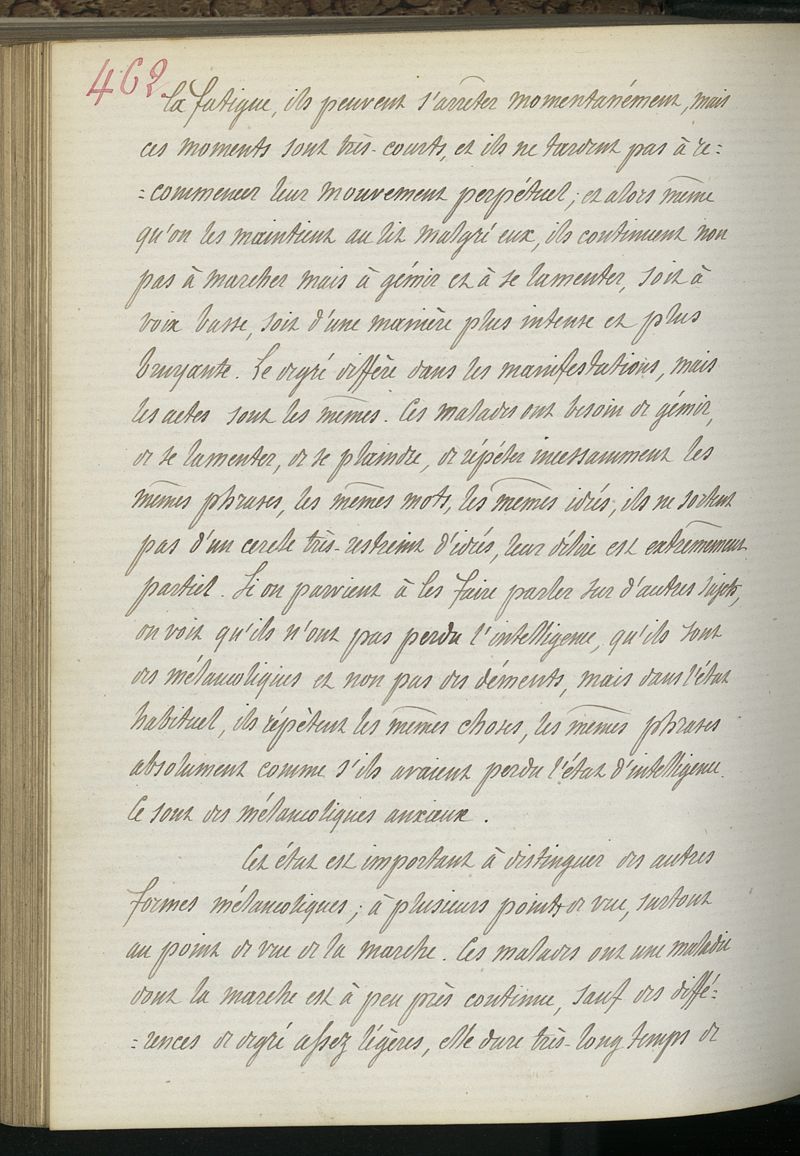 462.
la fatigue, ils peuvent s'arrêter momentanément, mais
ces moments sont très-courts, et ils ne tardent pas à re=
=commencer leur mouvement perpétuel; et alors même
qu'on les maintient au lit malgré eux, ils continuent non
pas à marcher mais à gémir et à se lamenter, soit à
voix basse, soit d'une manière plus intense et plus
bruyante. Le degré diffère dans les manifestations, mais
les actes sont les mêmes. Ces malades ont besoin de gémir,
de se lamenter, de se plaindre, de répéter incessamment les
mêmes phrases, les mêmes mots, les mêmes idées, ils ne sortent
pas d'un cercle très-restreint d'idées, leur délire est extrêmement
partiel. Si on parvient à les faire parler sur d'autres sujets,
on voit qu'ils n'ont pas perdu l'intelligence, qu'ils sont
des mélancoliques et non pas des déments, mais dans l'état
habituel, ils répètent les mêmes choses, les mêmes phrases
absolument comme s'ils avaient perdu l'état d'intelligence.
Ce sont des mélancoliques anxieux.
Cet état est important à distinguer des autres
formes mélancoliques; à plusieurs points de vue, surtout
au point de vue de la marche. Ces malades ont une maladie
dont la marche est à peu près continue, sauf des diffé=
=rences de degré assez légères, elle dure très-long temps de